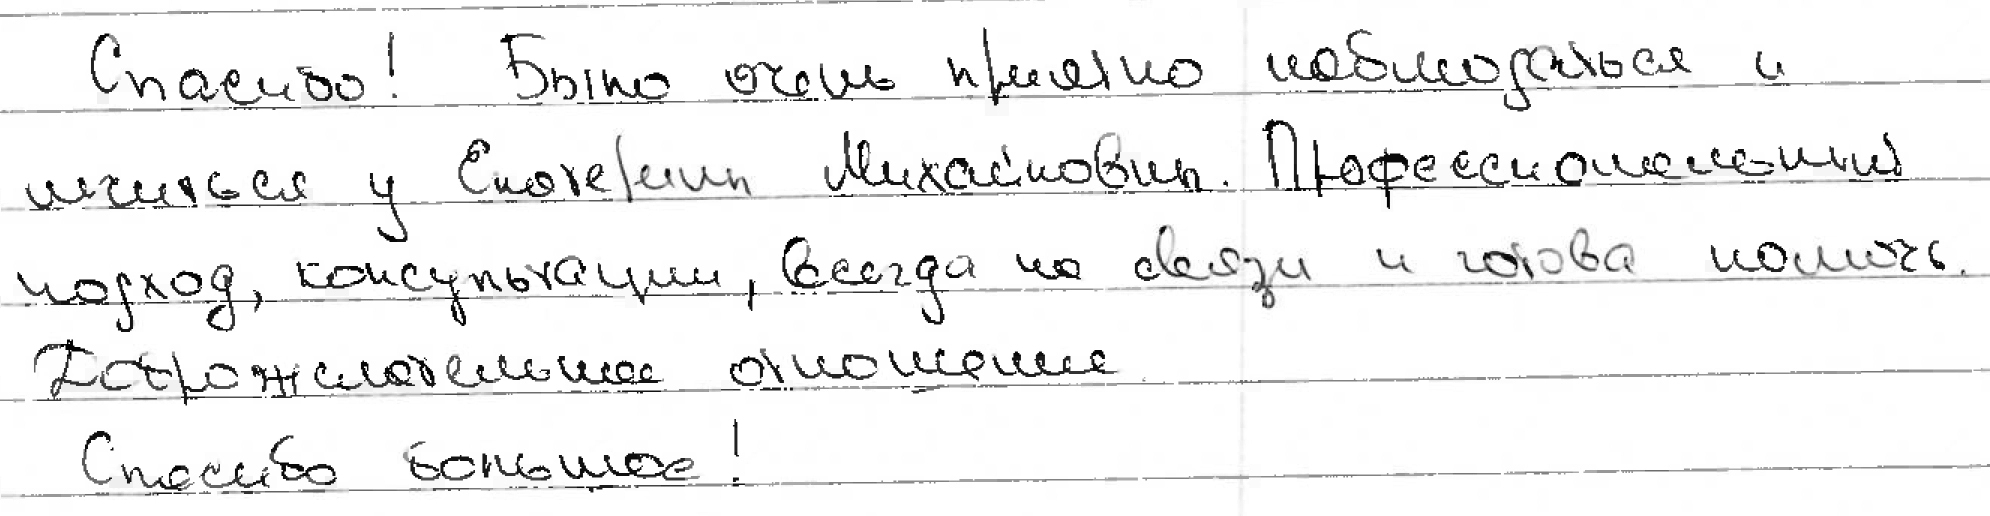 Спасибо! Было очень приятно наблюдаться и
лечиться у Екатерины Михайловны. Профессиональный
подход, консультации, всегда на связи и готова помочь.
Доброжелательное отношение
Спасибо большое!